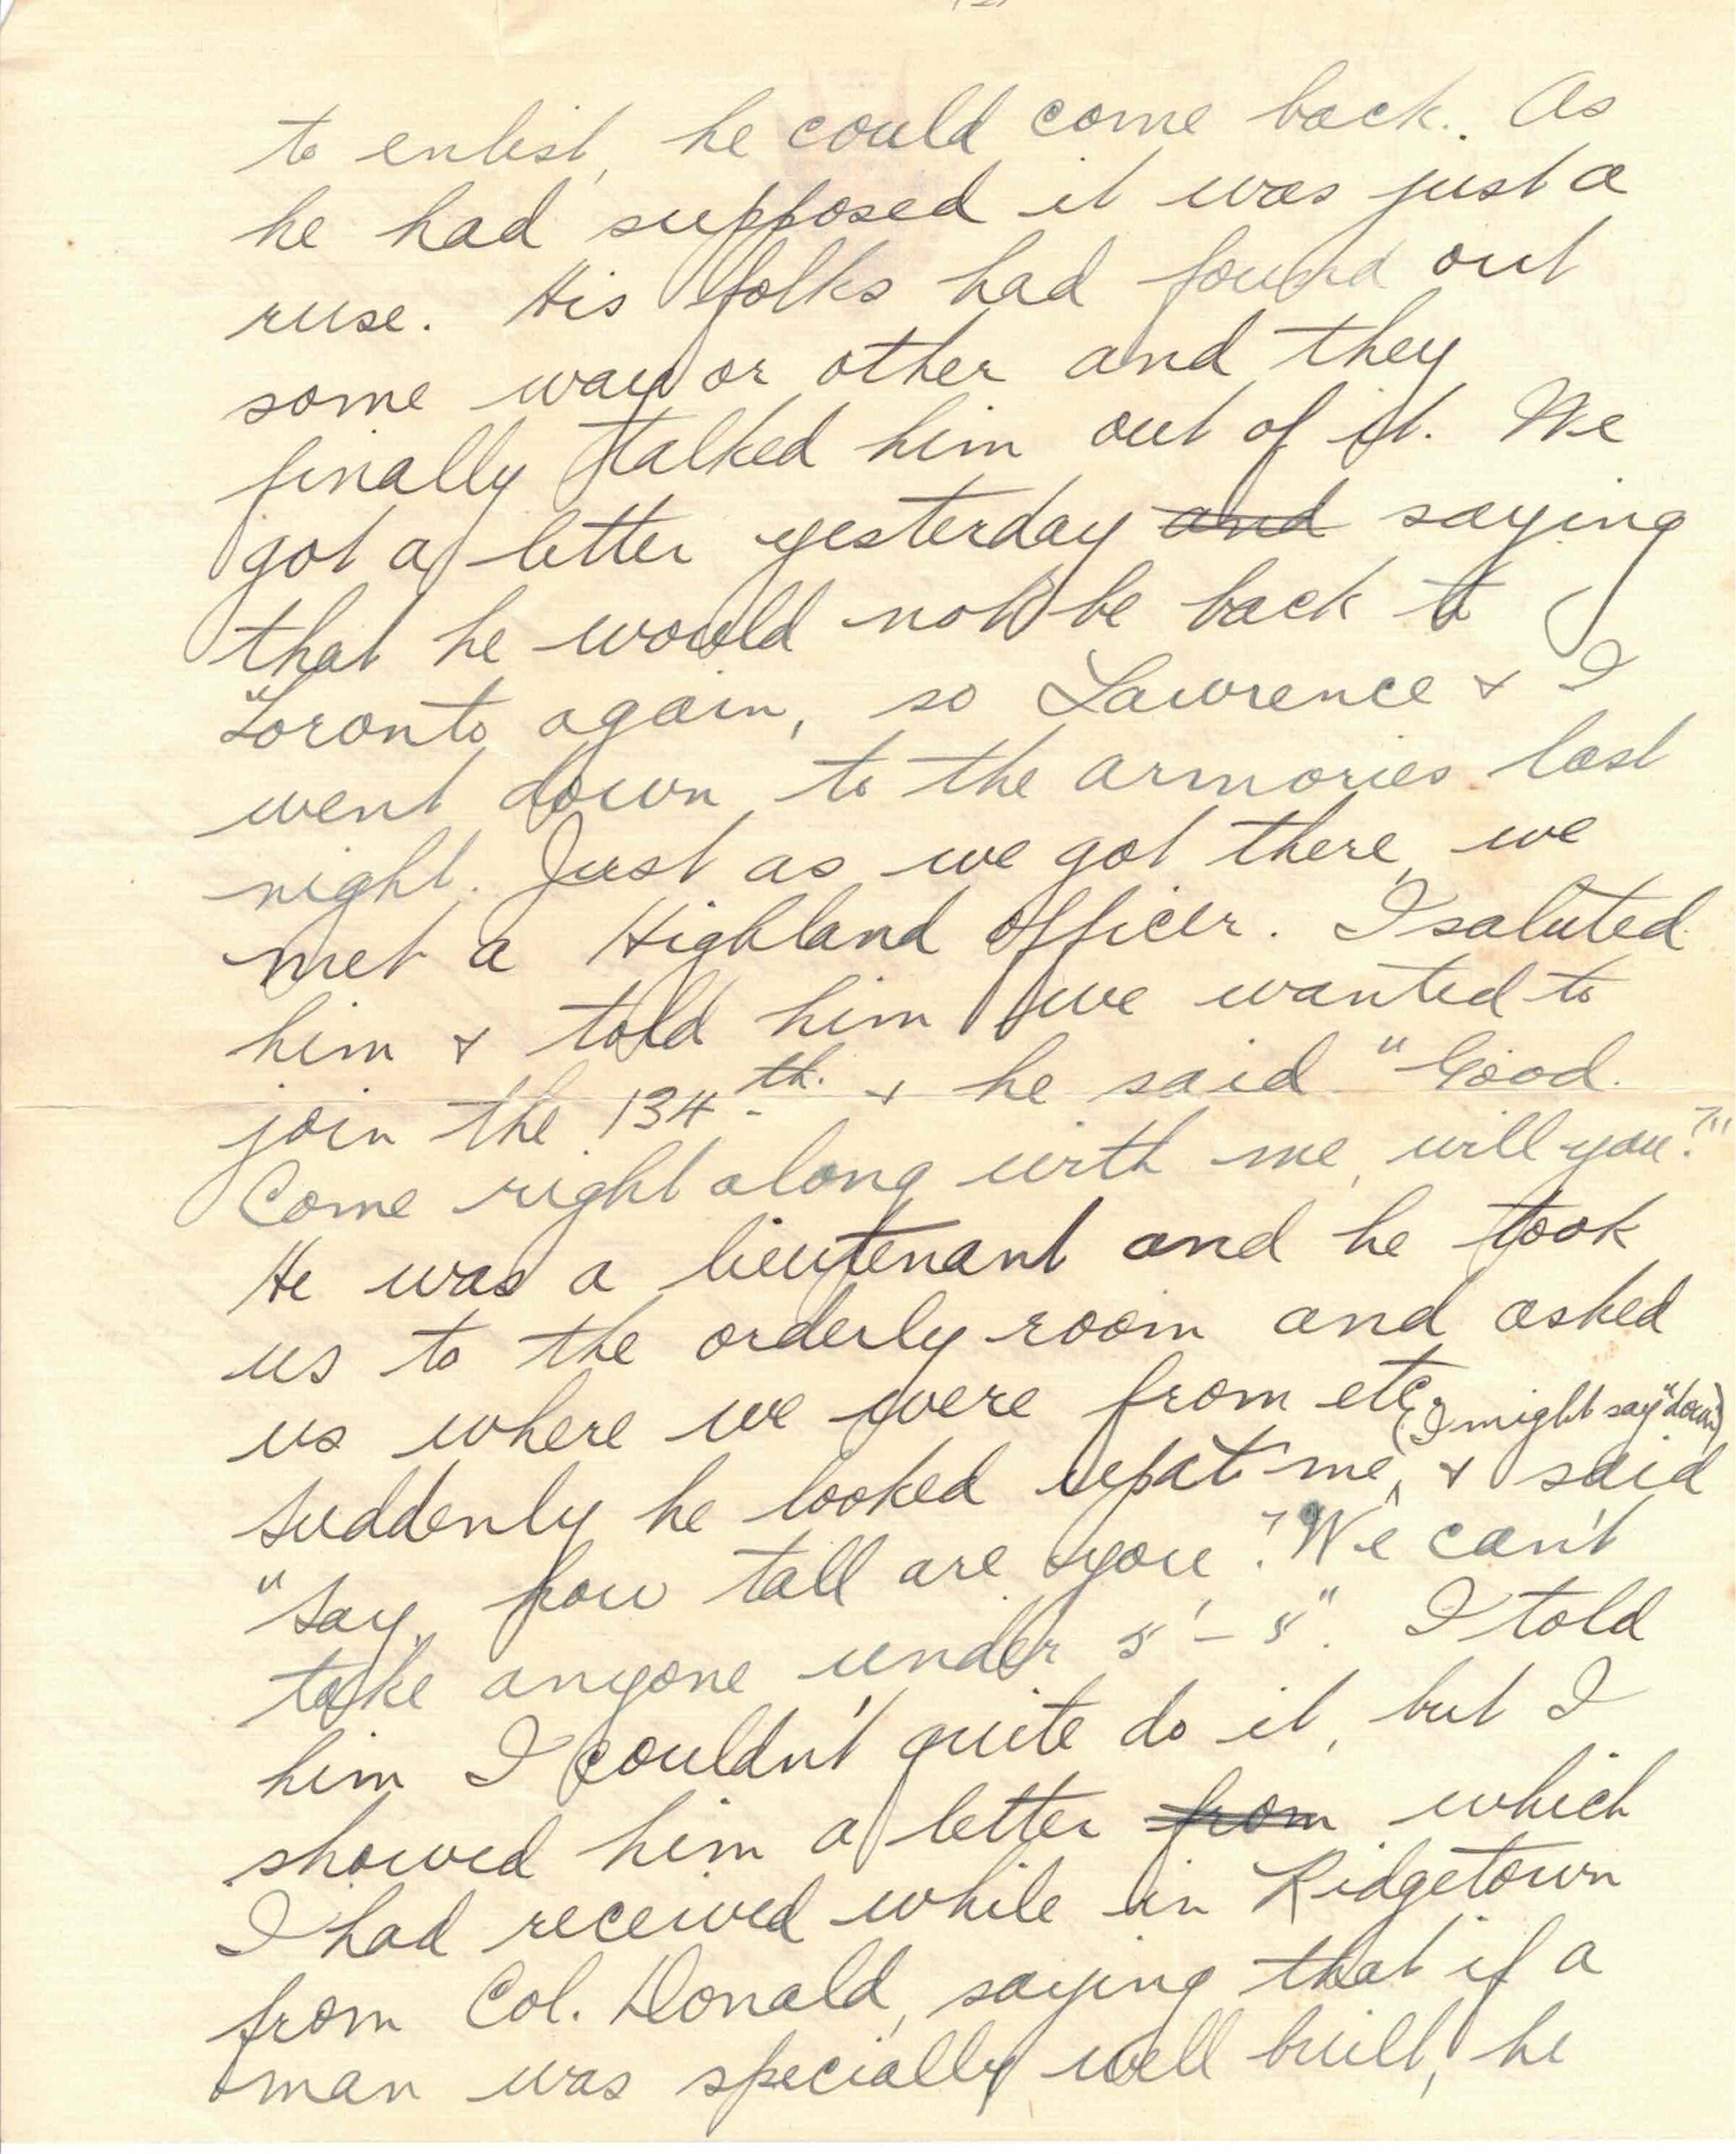 (2)
to enlist, he could come back. As
he had supposed it was just a
ruse. His folks had found out
some way or other and they
finally talked him out of it. We
got a letter yesterday and saying
that he would not be back to
Toronto again, so Lawrence & I
went down to the armories last
night. Just as we got there, we
met a Highland officer. I saluted
him & told him we wanted to
join the 134th. & he said "Good.
Come right along with me, will you?"
He was a lieutenant and he took
us to the orderly room and asked
us where we were from etc.
(I might say "down")
Suddenly he looked up at me, & said
"Say, how tall are you? We can't
take anyone under 5'-5". I told
him I couldn't quite do it, but I
showed him a letter from which
I had received while in Ridgetown
from Col. Donald, saying that if a
man was specially well built, he